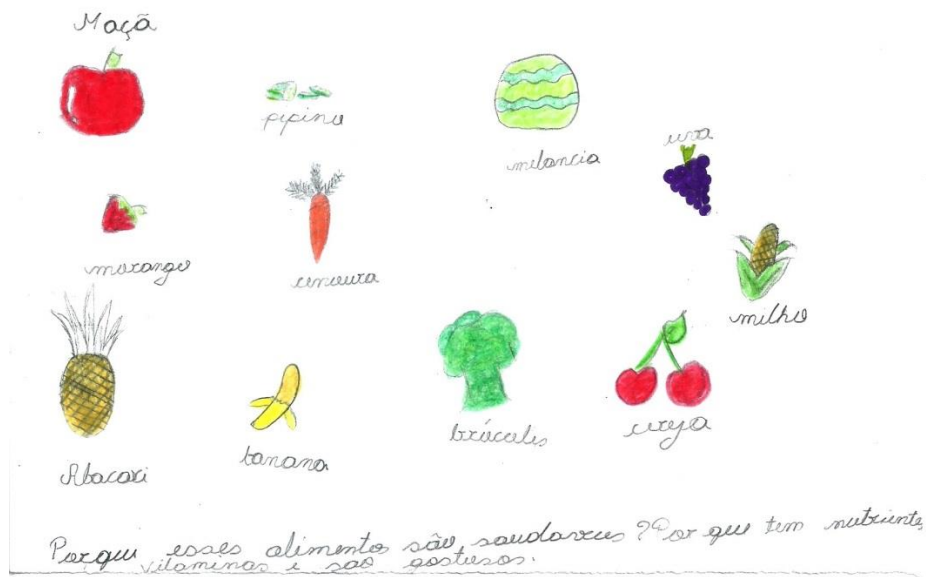 Maçã
pipino
melancia
uva
morango
cenoura
milho
Abacaxi
banana
brócolis
cereja
Porque esses alimento são saudaveis? Por que tem nutriente,
vitaminas e são gostosos.